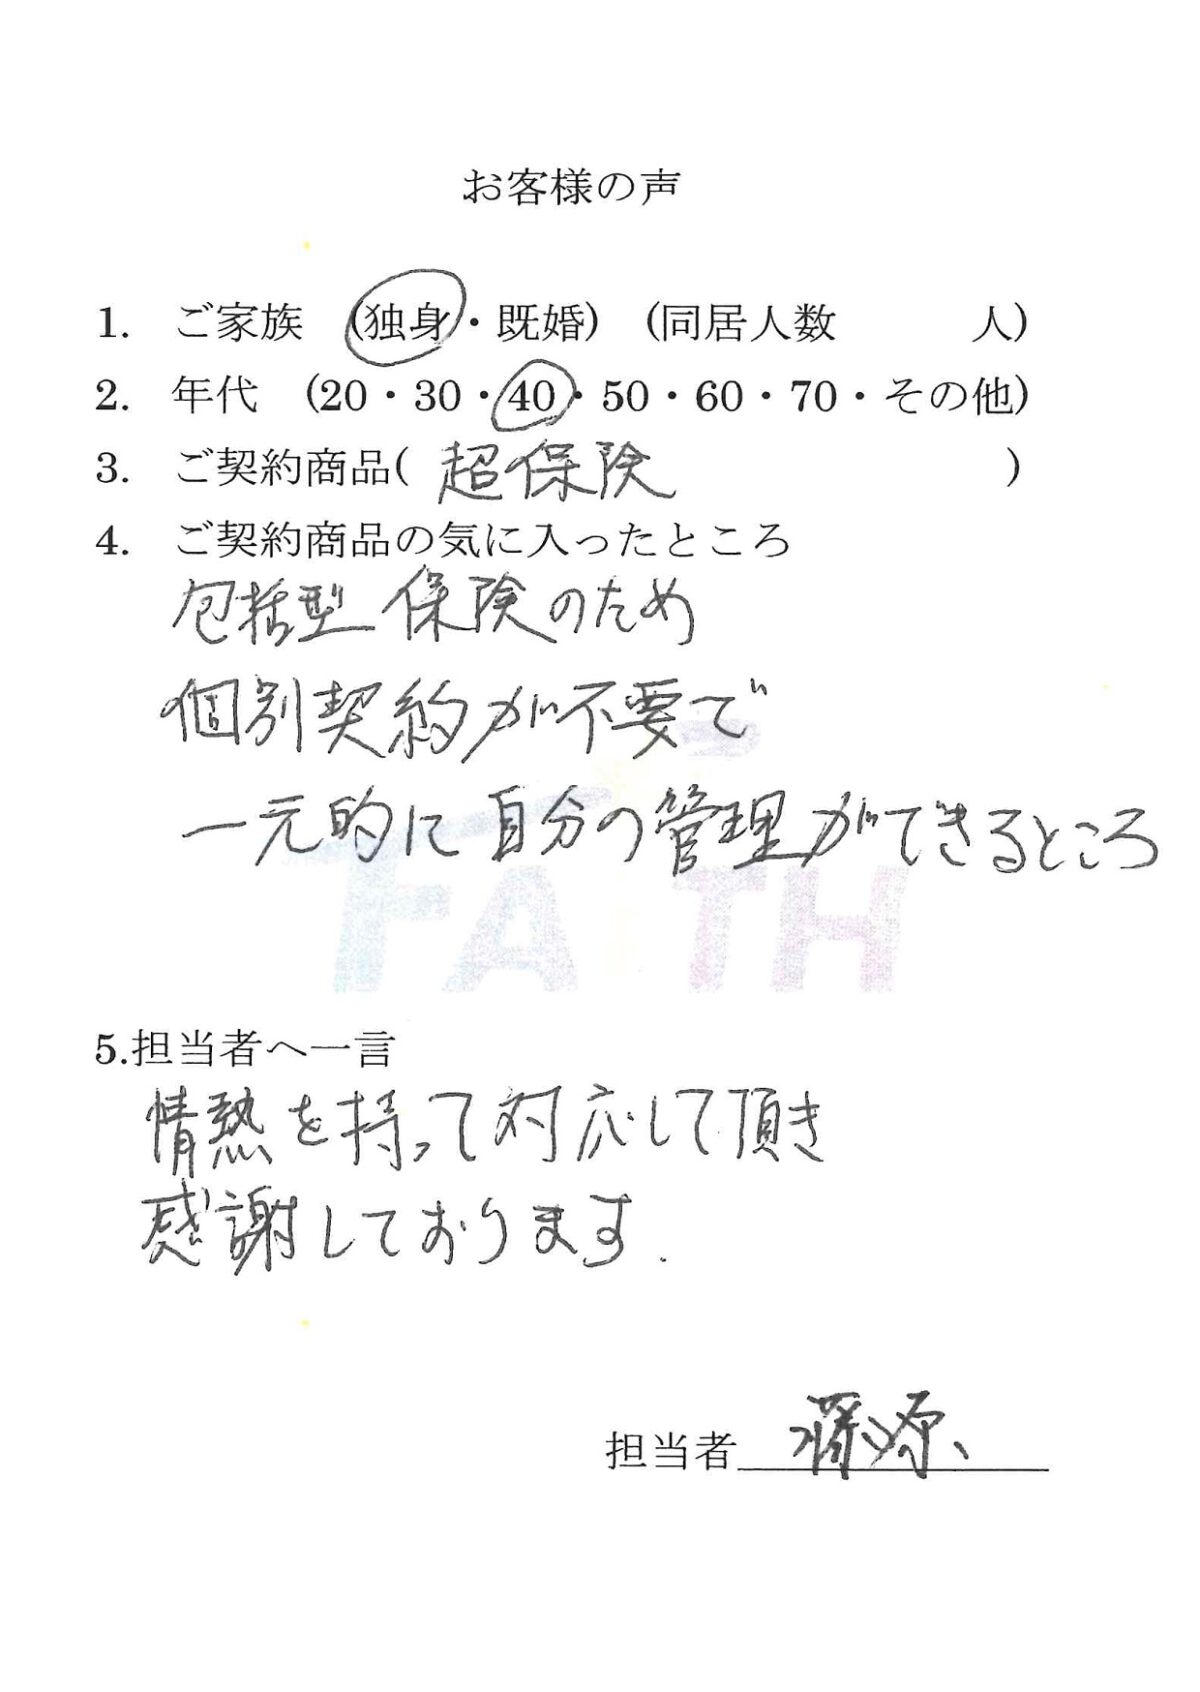 お客様の声
1. ご家族 (独身・既婚) (同居人数 人)
2. 年代 (20・30・40・50・60・70・その他)
3. ご契約商品( 超保険 )
4. ご契約商品の気に入ったところ
包括型保険のため
個別契約が不要で
一元的に自分の管理ができるところ
FAiTH
5.担当者へ一言
情熱を持って対応して頂き
感謝しております.
担当者 藤源